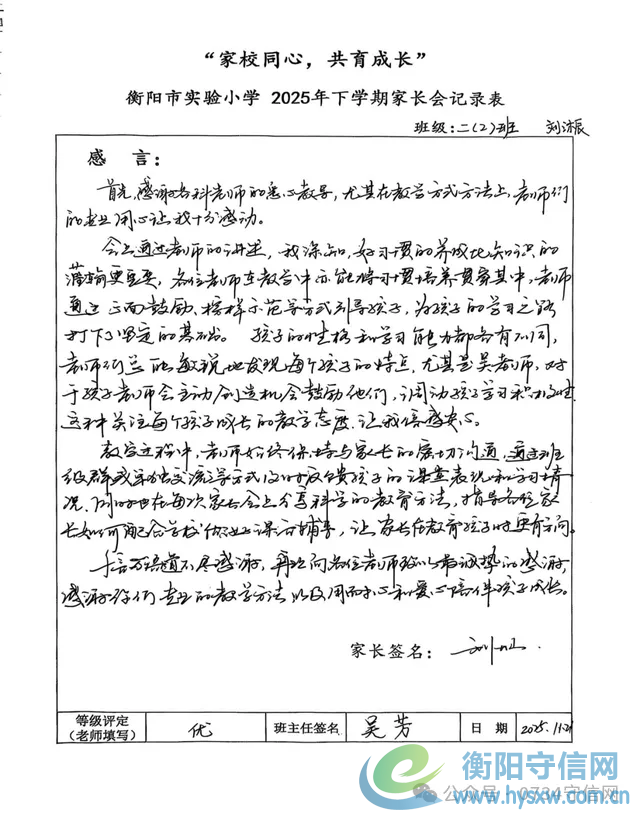 “家校同心，共育成长”
衡阳市实验小学 2025年下学期家长会记录表
班级：二(2)班 刘沐辰
感 言：
首先，感谢各科老师的悉心教导，尤其在教学方式方法上，老师们
的专业用心让我十分感动。
会上通过老师的讲述，我深知，好习惯的养成比知识的
灌输更重要，各位老师在教学中亦能将习惯培养贯穿其中，老师
通过正面鼓励、榜样示范等方式引导孩子，为孩子的学习之路
打下了坚定的基础。孩子的性格和学习能力都各有不同，
老师们总能敏锐地发现每个孩子的特点，尤其是吴老师，对
于孩子老师会主动创造机会鼓励他们，调动孩子学习积极性
这种关注每个孩子成长的教学态度，让我倍感安心。
教学过程中，老师始终保持与家长的密切沟通，通过班
级群或家长交流等方式及时反馈孩子的课堂表现和学习情
况，同时也在每次家长会上分享科学的教育方法，指导各位家
长如何配合学校做好课后辅导，让家长在教育孩子时更有方向。
千言万语道不尽感谢，再次向各位老师致以最诚挚的感谢，
感谢你们专业的教学方法以及用耐心和爱心陪伴孩子成长。
家长签名：刘
等级评定
(老师填写)
优
班主任签名
吴芳
日 期
2025.11.21
衡阳守信网
公众号·0734守信网
www.hysxw.com.cn